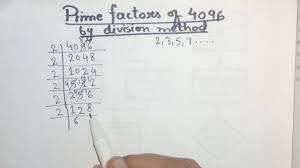 Prime factors of 4096
by division method
2,3,5,7....
2 | 4096
2 | 2048
2 | 1024
2 | 512
2 | 256
2 | 128
6